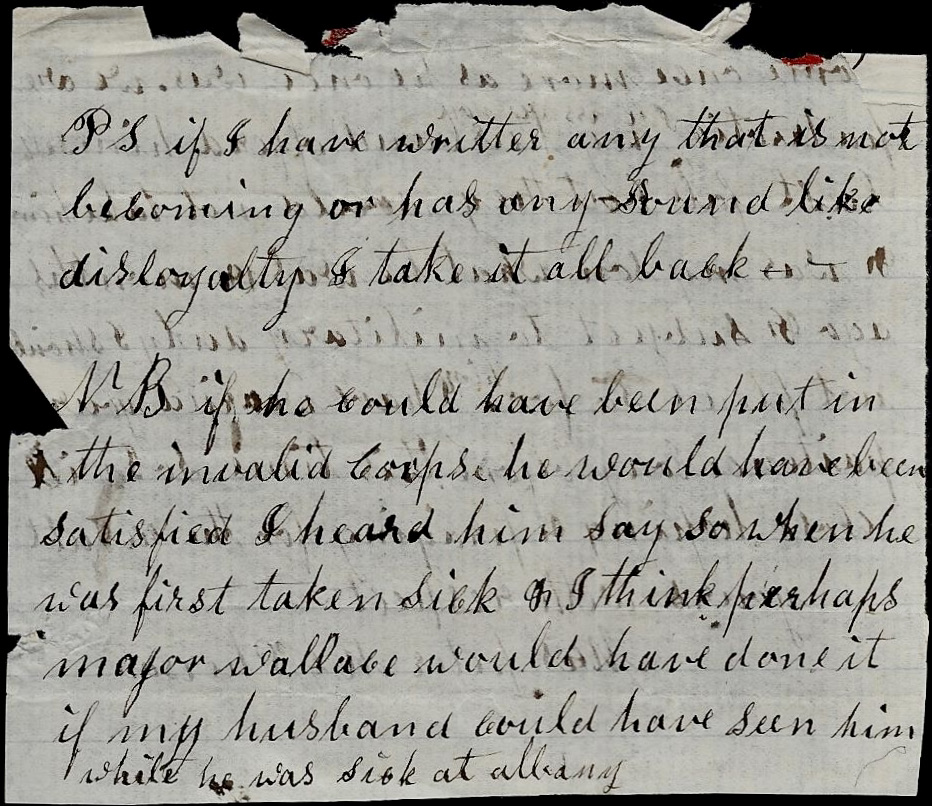 PS if I have writter any that is not
becoming or has any sound like
disloyalty I take it all back — —
N B if he could have been put in
the invalid Corps. he would have been
satisfied I heard him say so when he
was first taken sick & I think perhaps
major wallace would have done it
if my husband could have seen him
while he was sick at albany